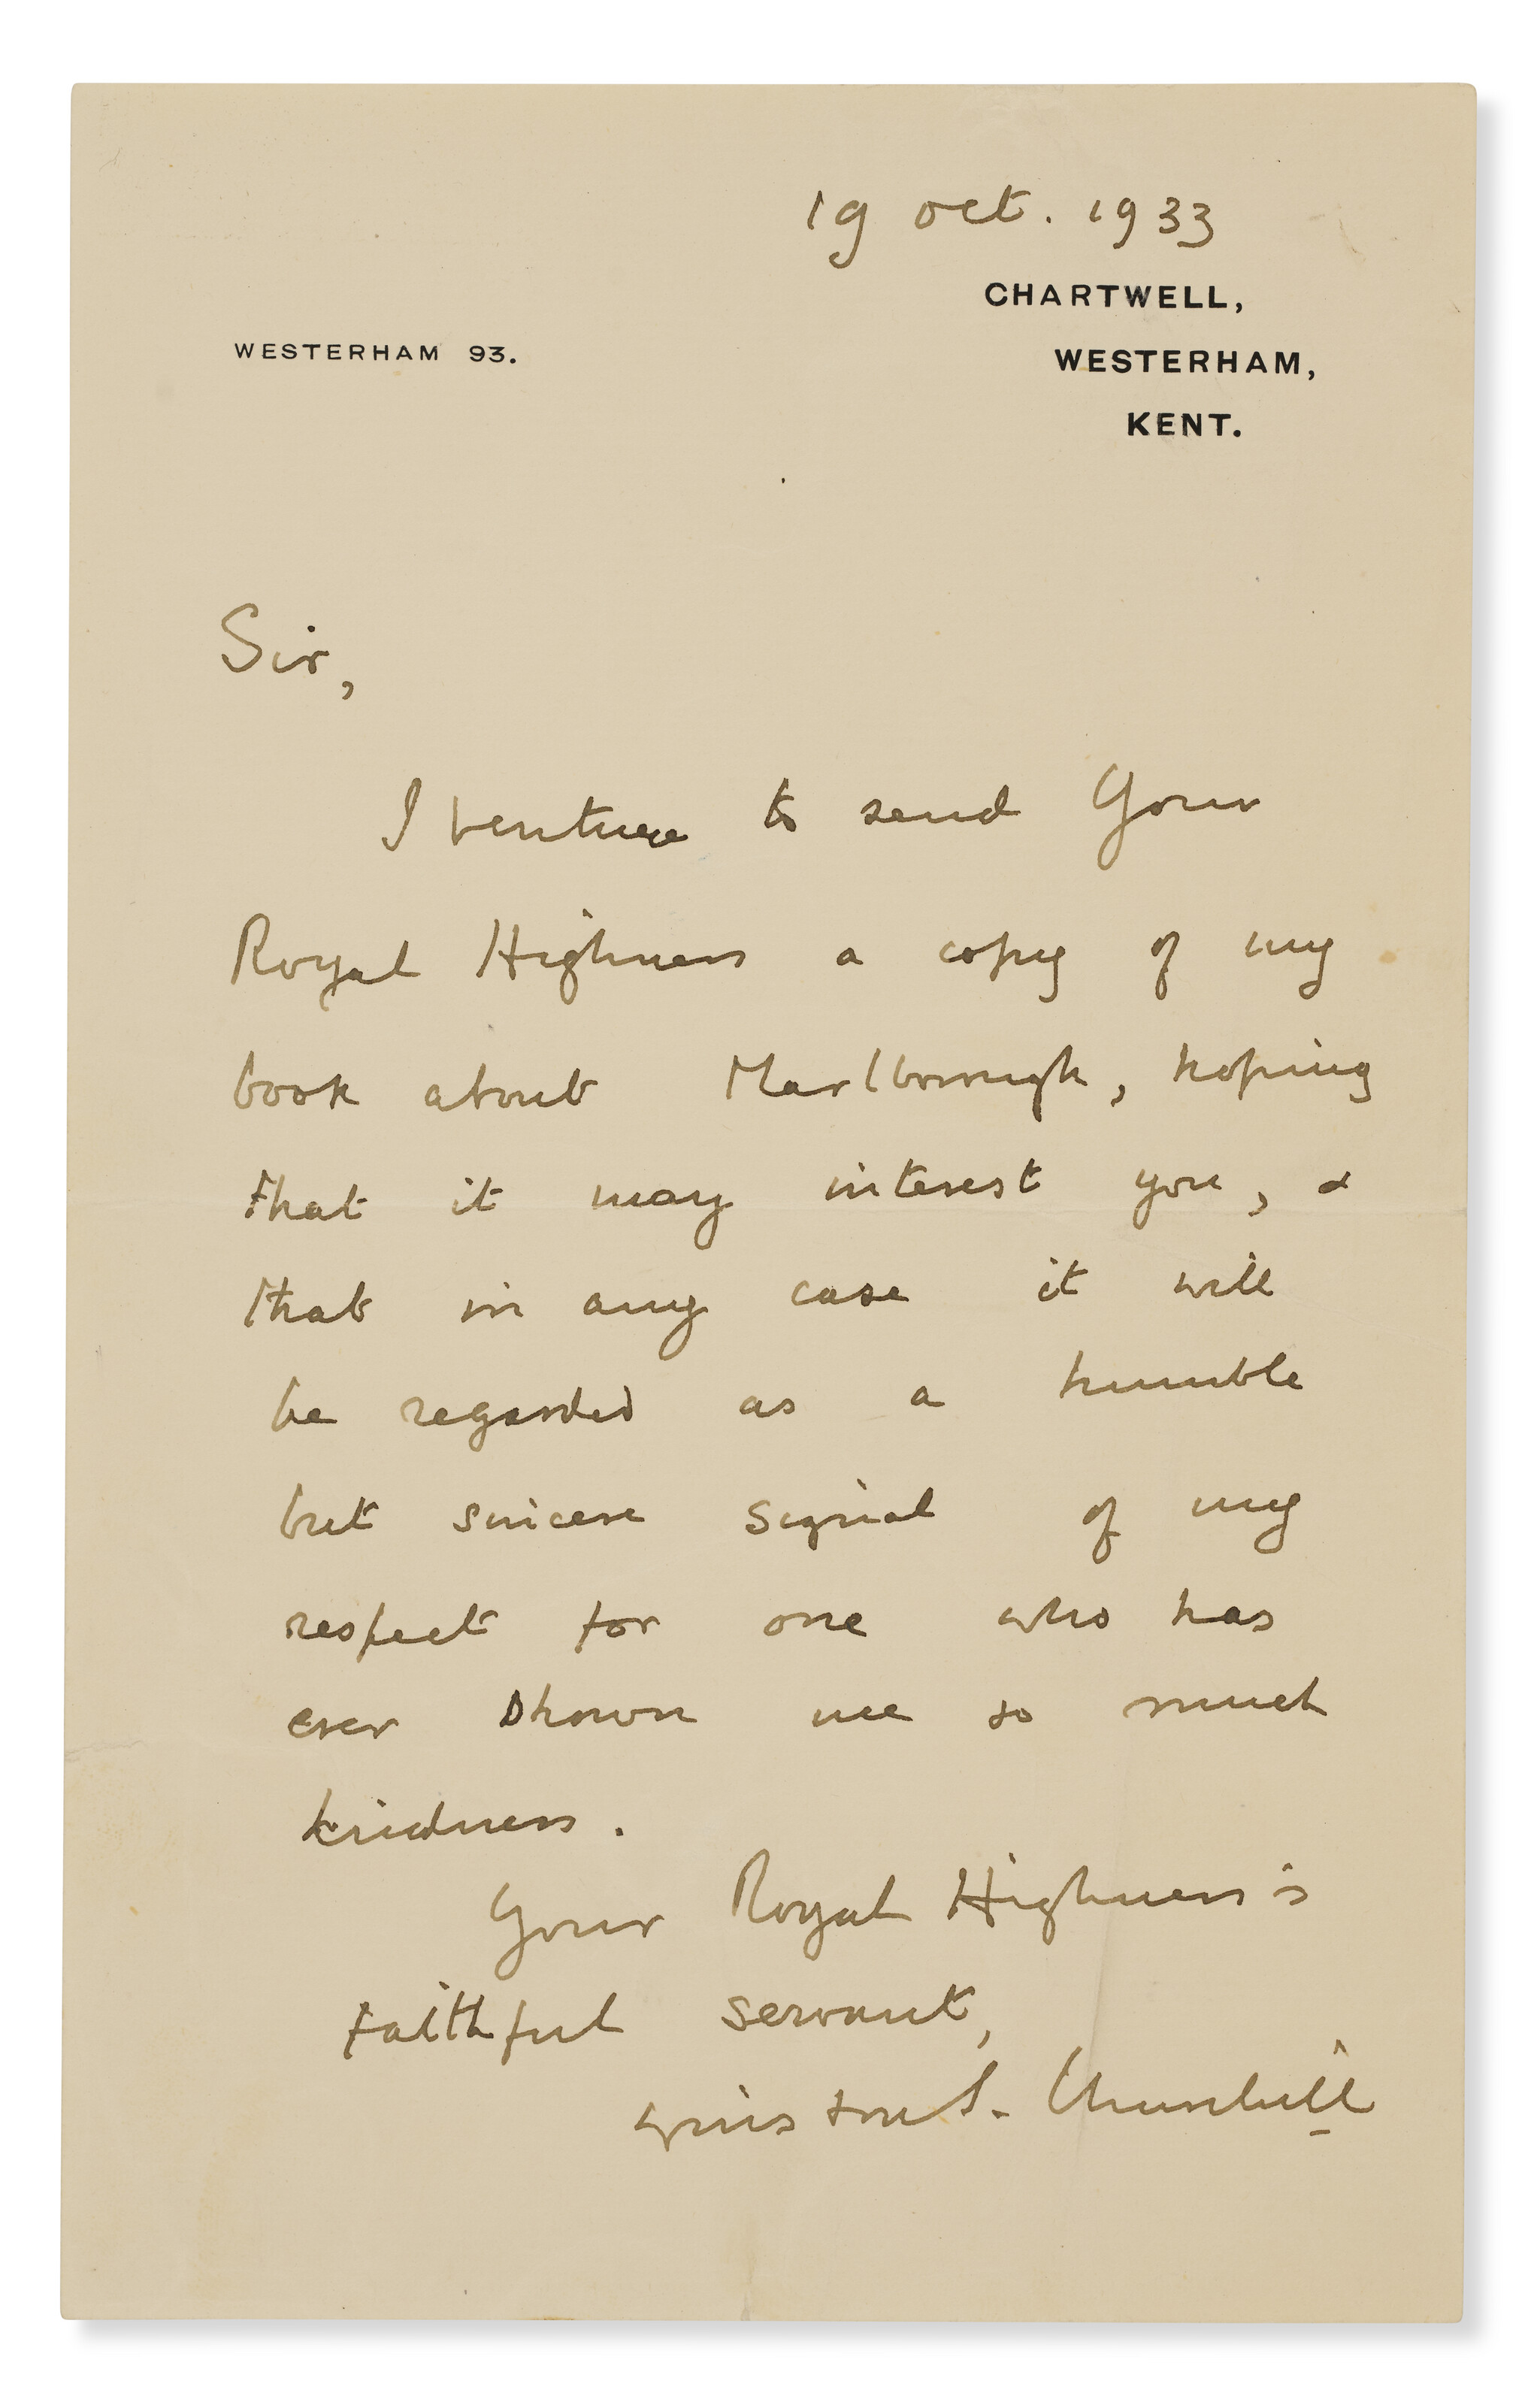 19 Oct. 1933
CHARTWELL,
WESTERHAM 93.
WESTERHAM,
KENT.
Sir,
I venture to send Your
Royal Highness a copy of my
book about Marlborough, hoping
that it may interest you, &
that in any case it will
be regarded as a humble
but sincere signal of my
respect for one who has
ever shown me so much
kindness.
Your Royal Highness's
faithful servant,
Winston S. Churchill